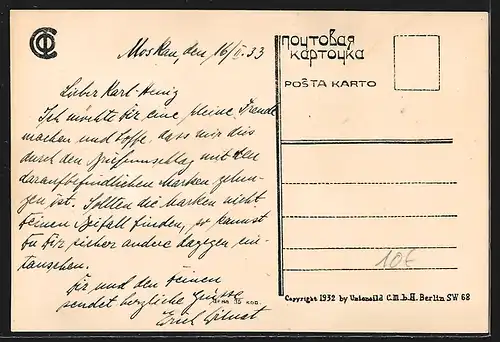 Moskau, den 16/II.33
Lieber Karl-Heinz
Ich möchte Dir eine kleine Freude
machen und hoffe, dass mir dies
durch den Briefumschlag mit den
daraufbefindlichen Marken gelun-
gen ist. Sollten die Marken nicht
Deinen Beifall finden, so kannst
Du Dir sicher andre dagegen ein-
tauschen.
Dir und den Deinen
sendet herzliche Grüsse
Erich
почтовая
карточка
POŜTA KARTO
10€
15 коп.
Copyright 1932 by Unionbild G.m.b.H. Berlin SW 68